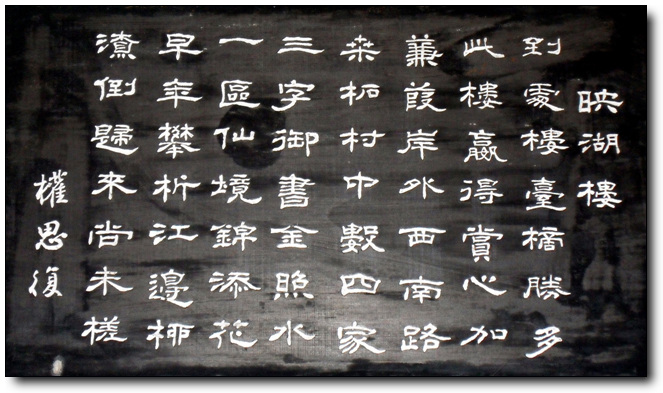 映湖樓
到處樓臺摘勝多
此樓贏得賞心加
蒹葭岸外西南路
桒柘村中數四家
三字御書金照水
一區仙境錦添花
早年攀折江邊柳
潦倒歸來尚未槎
權思復